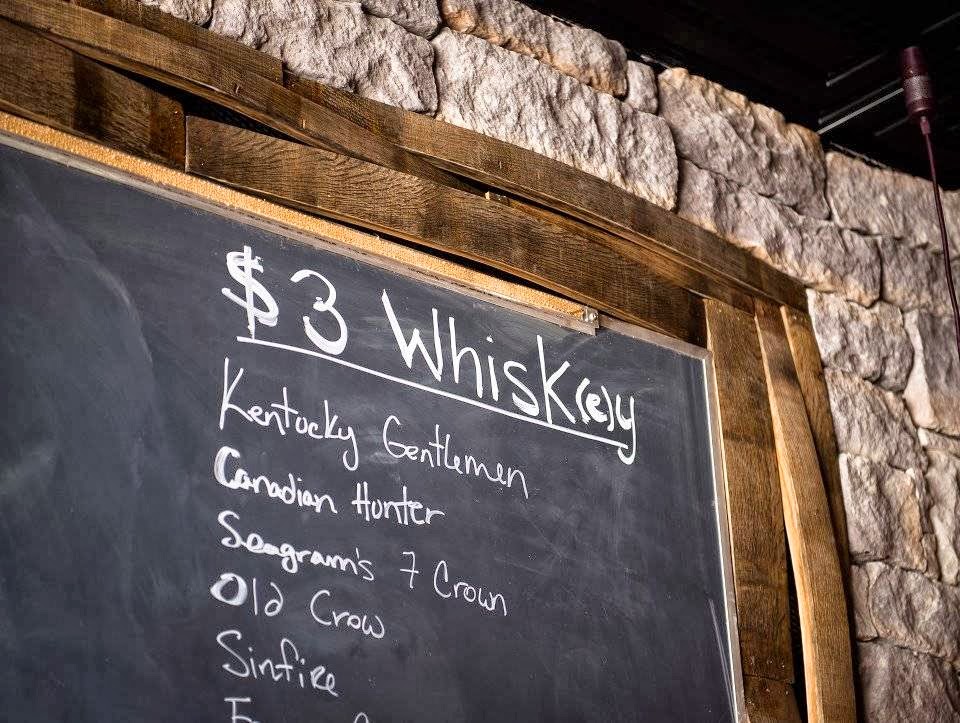 $3 Whisk(e)y
Kentucky Gentlemen
Canadian Hunter
Seagram's 7 Crown
Old Crow
Sinfire